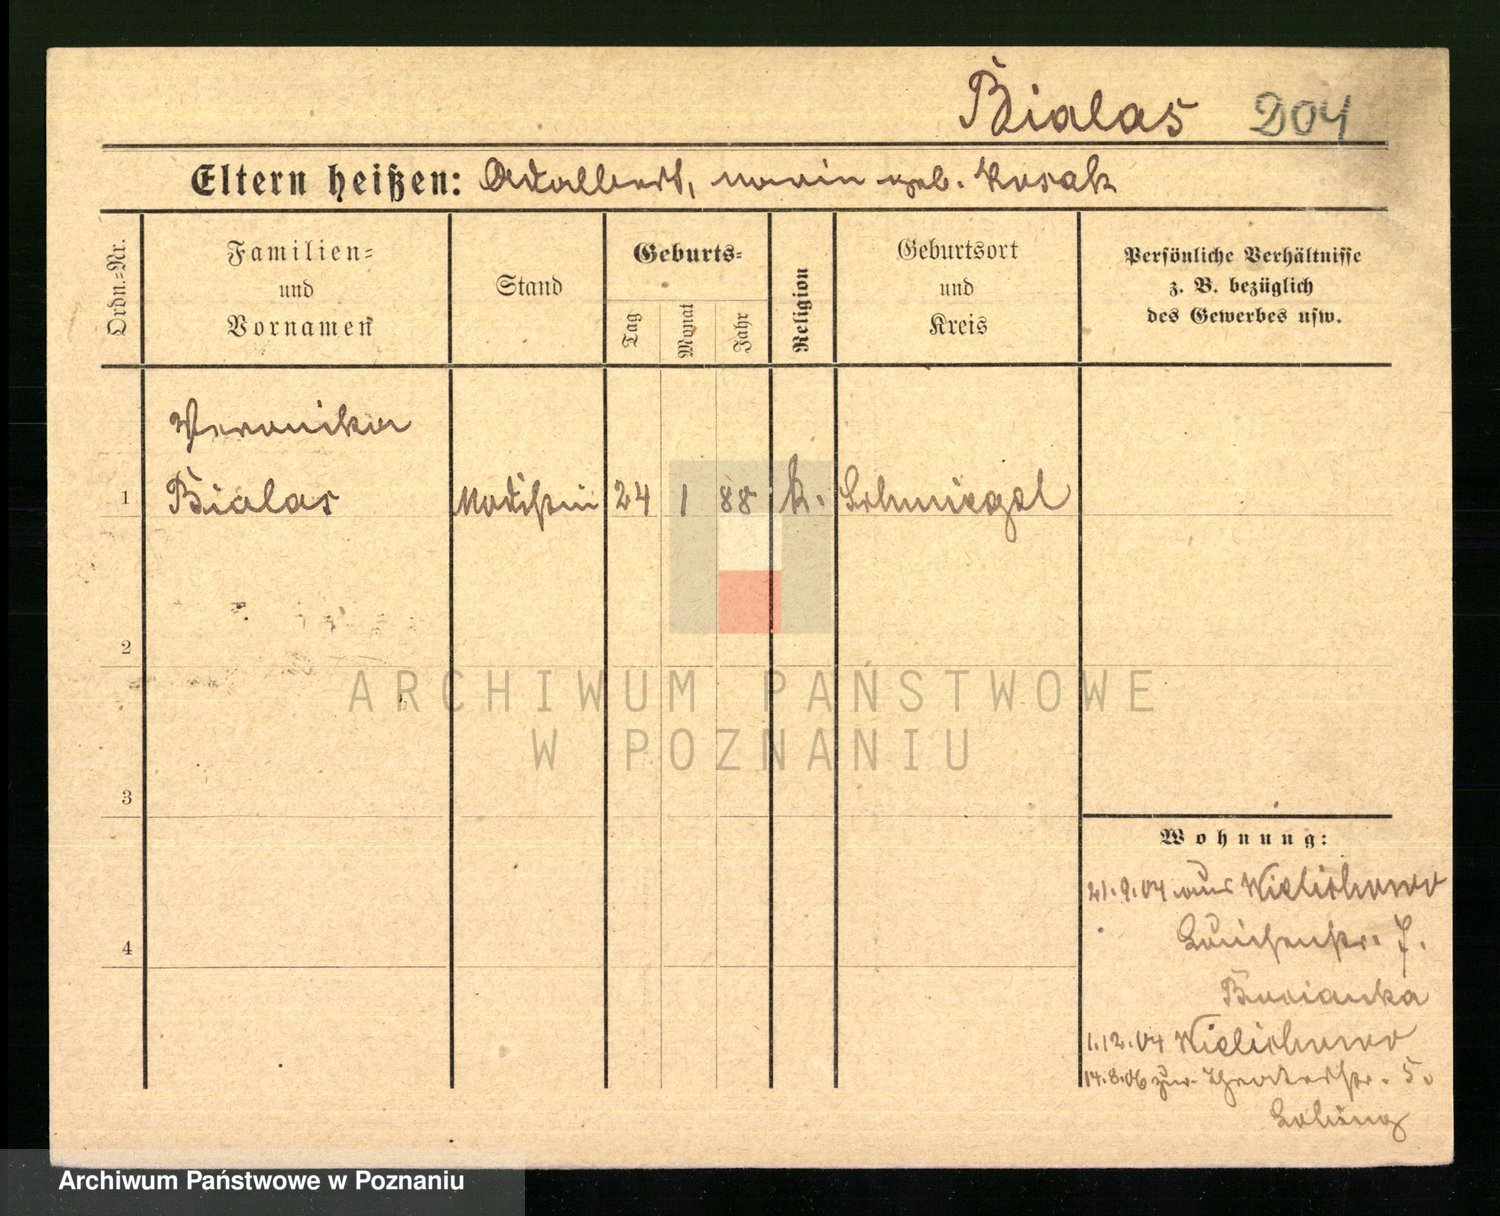 Bialas 204
Eltern heißen: Adalbert, Marie geb. Kosak
Ordn.=Nr.
Familien=
und
Vornamen
Stand
Geburts=
Tag
Monat
Jahr
Religion
Geburtsort
und
Kreis
Persönliche Verhältnisse
z. B. bezüglich
des Gewerbes usw.
Veronika
1 Bialas Modistin 24 1 88 k. Schmiegel
2
ARCHIWUM PAŃSTWOWE
W POZNANIU
3
Wohnung:
21.9.04 aus Wielichowo
4
Louisenstr. 7.
1.12.04 Wielichowo
14.8.06 zur. Theaterstr. 5.
Archiwum Państwowe w Poznaniu